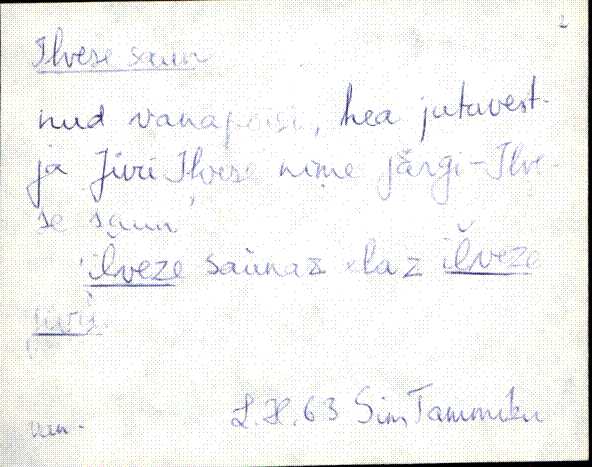 2
Ilvese saun
nud vanapoisi, hea jutuvest-
ja Jüri Ilvese nime järgi - Ilve
se saun
ĭlveze saùnaz elaz ĭlveze
jüri.
van. L.H. 63 Sim Tammiku